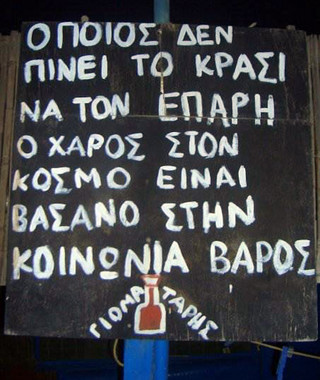 Ο ΠΟΙΟΣ ΔΕΝ
ΠΙΝΕΙ ΤΟ ΚΡΑΣΙ
ΝΑ ΤΟΝ ΕΠΑΡΗ
Ο ΧΑΡΟΣ ΣΤΟΝ
ΚΟΣΜΟ ΕΙΝΑΙ
ΒΑΣΑΝΟ ΣΤΗΝ
ΚΟΙΝΩΝΙΑ ΒΑΡΟΣ
ΓΙΟΜΑΤΑΡΗΣ